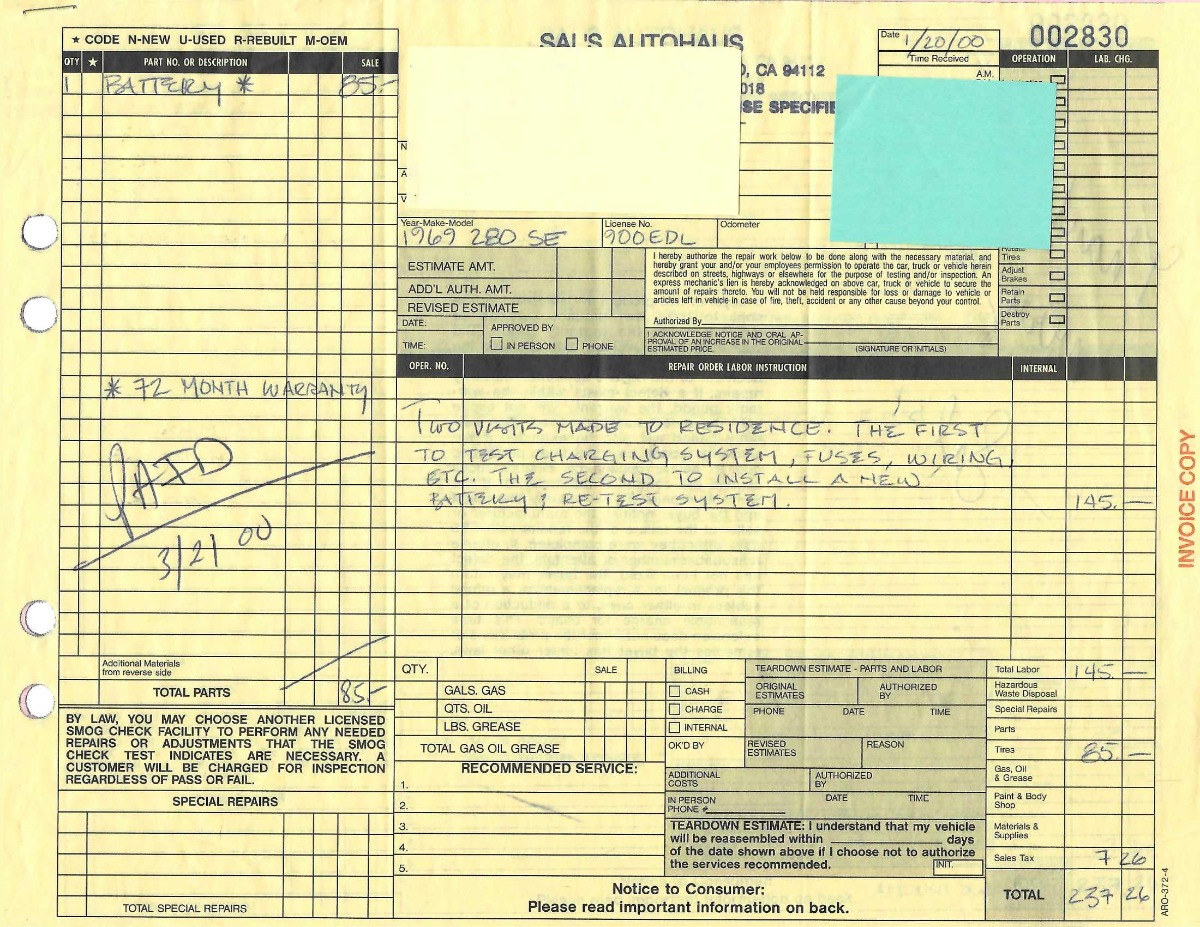 ★ CODE N-NEW U-USED R-REBUILT M-OEM
QTY ★ PART NO. OR DESCRIPTION SALE
1 BATTERY * 85.-
* 72 MONTH WARRANTY
PAID
3/21 00
Additional Materials
from reverse side
TOTAL PARTS 85.-
BY LAW, YOU MAY CHOOSE ANOTHER LICENSED
SMOG CHECK FACILITY TO PERFORM ANY NEEDED
REPAIRS OR ADJUSTMENTS THAT THE SMOG
CHECK TEST INDICATES ARE NECESSARY. A
CUSTOMER WILL BE CHARGED FOR INSPECTION
REGARDLESS OF PASS OR FAIL.
SPECIAL REPAIRS
TOTAL SPECIAL REPAIRS
SAL'S AUTOHAUS
, CA 94112
018
SE SPECIFIE
Date 1/20/00
Time Received
A.M.
002830
OPERATION LAB. CHG.
N
A
V
Year-Make-Model
1969 280 SE
License No.
900EDL
Odometer
Rotate
Tires
Adjust
Brakes
Retain
Parts
Destroy
Parts
ESTIMATE AMT.
ADD'L AUTH. AMT.
REVISED ESTIMATE
DATE:
TIME:
APPROVED BY
IN PERSON PHONE
I hereby authorize the repair work below to be done along with the necessary material, and
hereby grant your and/or your employees permission to operate the car, truck or vehicle herein
described on streets, highways or elsewhere for the purpose of testing and/or inspection. An
express mechanic's lien is hereby acknowledged on above car, truck or vehicle to secure the
amount of repairs thereto. You will not be held responsible for loss or damage to vehicle or
articles left in vehicle in case of fire, theft, accident or any other cause beyond your control.
Authorized By
I ACKNOWLEDGE NOTICE AND ORAL AP-
PROVAL OF AN INCREASE IN THE ORIGINAL
ESTIMATED PRICE.
(SIGNATURE OR INITIALS)
OPER. NO. REPAIR ORDER LABOR INSTRUCTION INTERNAL
TWO VISITS MADE TO RESIDENCE. THE FIRST
TO TEST CHARGING SYSTEM, FUSES, WIRING,
ETC. THE SECOND TO INSTALL A NEW
BATTERY & RE-TEST SYSTEM. 145.-
INVOICE COPY
QTY. SALE
GALS. GAS
QTS. OIL
LBS. GREASE
TOTAL GAS OIL GREASE
RECOMMENDED SERVICE:
1.
2.
3.
4.
5.
BILLING
CASH
CHARGE
INTERNAL
OK'D BY
TEARDOWN ESTIMATE - PARTS AND LABOR
ORIGINAL
ESTIMATES
AUTHORIZED
BY
PHONE DATE TIME
REVISED
ESTIMATES
REASON
ADDITIONAL
COSTS
AUTHORIZED
BY
IN PERSON
PHONE #
DATE TIME
TEARDOWN ESTIMATE: I understand that my vehicle
will be reassembled within days
of the date shown above if I choose not to authorize
the services recommended.
INIT.
Notice to Consumer:
Please read important information on back.
Total Labor 145.-
Hazardous
Waste Disposal
Special Repairs
Parts
Tires 85.-
Gas, Oil
& Grease
Paint & Body
Shop
Materials &
Supplies
Sales Tax 7 26
TOTAL 237 26
ARO-372-4